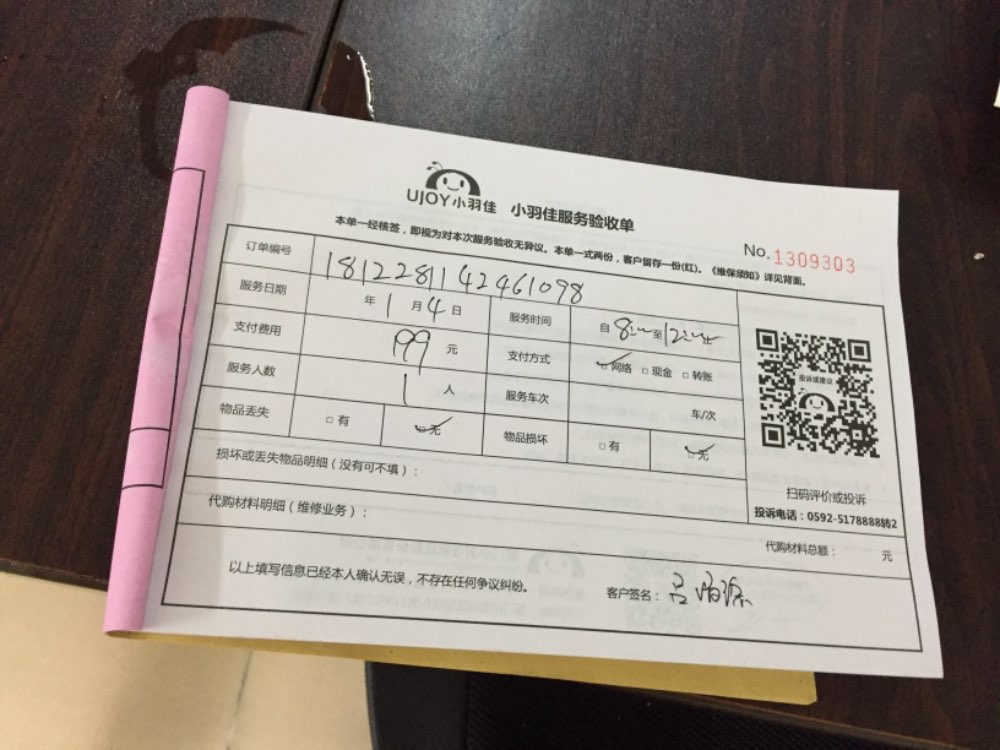 UJOY小羽佳 小羽佳服务验收单
本单一经核签，即视为对本次服务验收无异议。本单一式两份，客户留存一份(红)。《维保须知》详见背面。
No. 1309303
订单编号 1812281142461098
服务日期 年 1 月 4 日 服务时间 自 8 至 12
支付费用 199 元 支付方式 网络 □ 现金 □ 转账
服务人数 1 人 服务车次 车/次
物品丢失 □ 有 □ 无 物品损坏 □ 有 □ 无
投诉或建议
扫码评价或投诉
投诉电话：0592-5178888转2
损坏或丢失物品明细（没有可不填）：
代购材料明细（维修业务）：
代购材料总额： 元
以上填写信息已经本人确认无误，不存在任何争议纠纷。 客户签名：